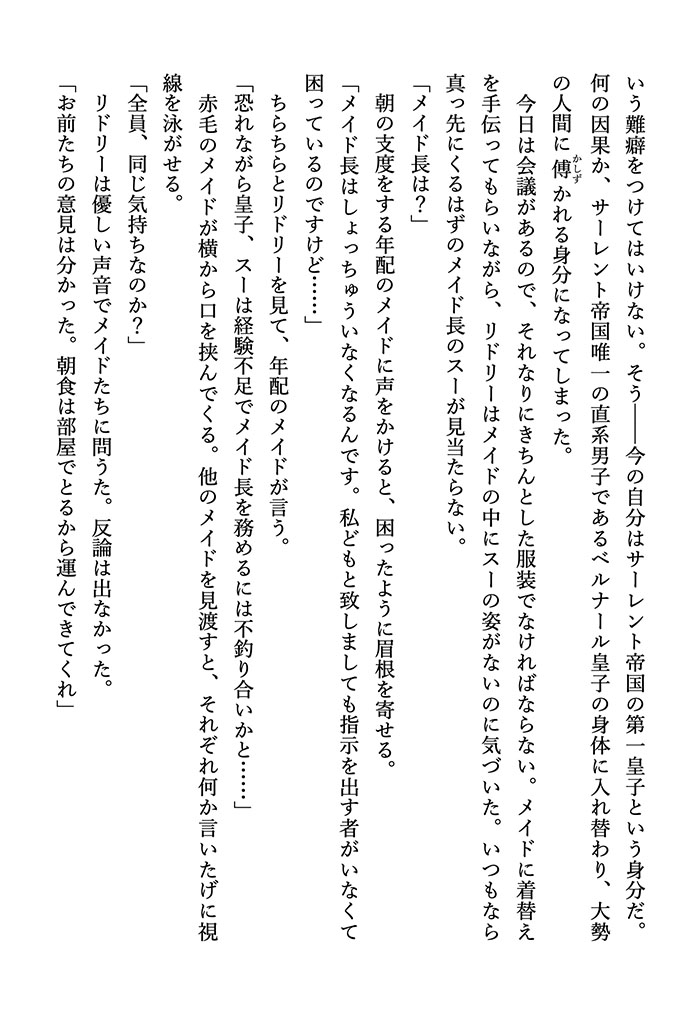 いう難癖をつけてはいけない。そう――今の自分はサーレント帝国の第一皇子という身分だ。
何の因果か、サーレント帝国唯一の直系男子であるベルナール皇子の身体に入れ替わり、大勢
の人間に傅かしずかれる身分になってしまった。
　今日は会議があるので、それなりにきちんとした服装でなければならない。メイドに着替え
を手伝ってもらいながら、リドリーはメイドの中にスーの姿がないのに気づいた。いつもなら
真っ先にくるはずのメイド長のスーが見当たらない。
「メイド長は？」
　朝の支度をする年配のメイドに声をかけると、困ったように眉根を寄せる。
「メイド長はしょっちゅういなくなるんです。私どもと致しましても指示を出す者がいなくて
困っているのですけど……」
　ちらちらとリドリーを見て、年配のメイドが言う。
「恐れながら皇子、スーは経験不足でメイド長を務めるには不釣り合いかと……」
　赤毛のメイドが横から口を挟んでくる。他のメイドを見渡すと、それぞれ何か言いたげに視
線を泳がせる。
「全員、同じ気持ちなのか？」
　リドリーは優しい声音でメイドたちに問うた。反論は出なかった。
「お前たちの意見は分かった。朝食は部屋でとるから運んできてくれ」